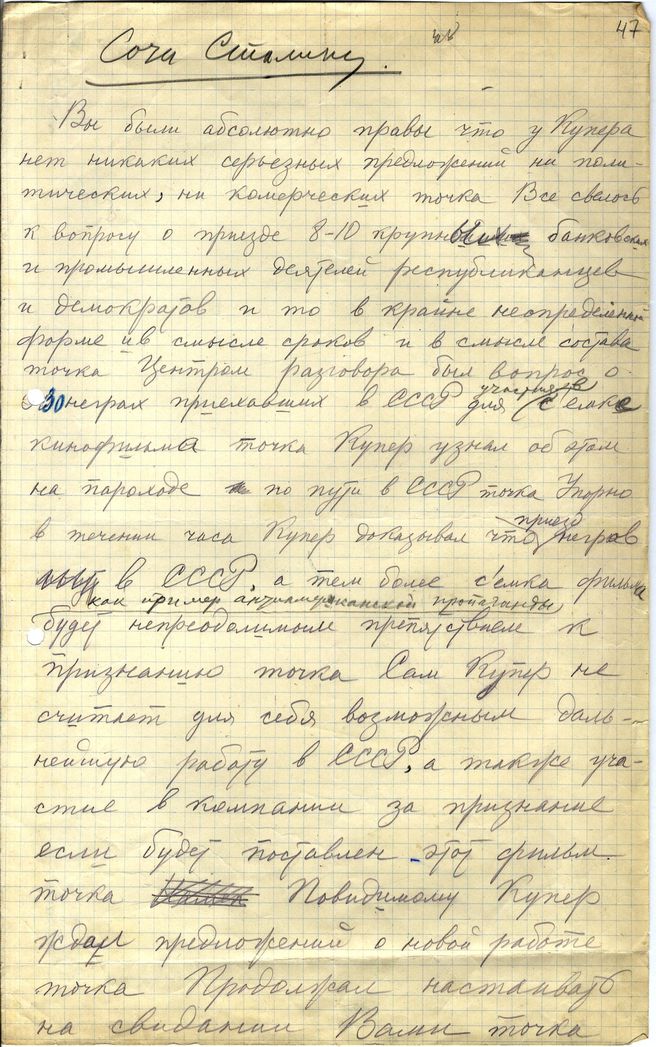 47
Соча Сталину.
Вы были абсолютно правы что у Купера
нет никаких серьезных предложений ни поли-
тических, ни комерческих точка Все свелось
к вопросу о приезде 8-10 крупных банковских
и промышленных деятелей республиканцев
и демократов и то в крайне неопределенной
форме и в смысле сроков и в смысле состава
точка Центром разговора был вопрос о
участия в
30 неграх приехавших в СССР для с'емке
кинофильма точка Купер узнал об этом
на пароходе по пути в СССР точка Упорно
приезд
в течении часа Купер доказывал что негров
в СССР, а тем более с'емка фильма
как пример антиамериканской пропаганды
будет непреодолимым препятствием к
признанию точка Сам Купер не
считает для себя возможным даль-
нейшую работу в СССР, а также уча-
стие в компании за признание
если будет поставлен этот фильм.
точка Повидимому Купер
ждал предложений о новой работе
точка Продолжал настаивать
на свидании Вами точка